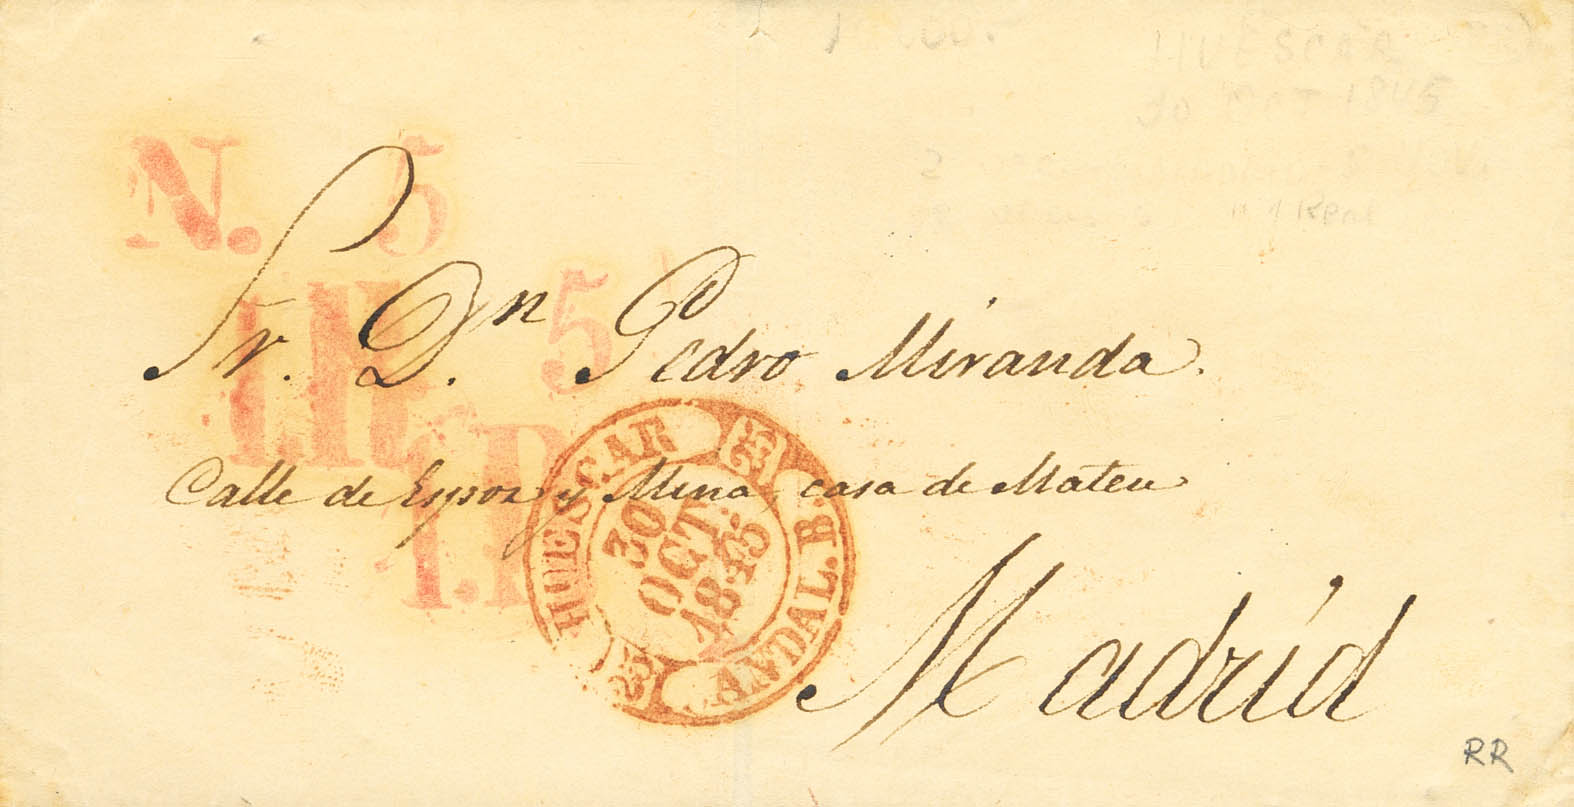 HUESCAR
30 OCT 1845
N. 5
5
Sr. Dn. Pedro Miranda.
Calle de Espoz y Mina, casa de Mateu
HUESCAR
30
OCT.
1845
ANDAL. B.
1.R
Madrid
RR